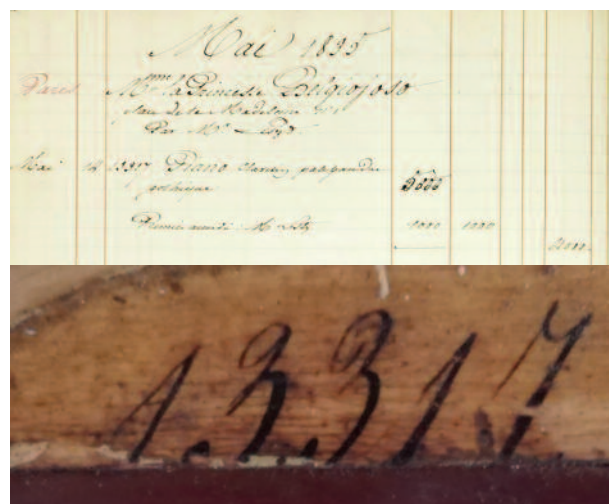 Mai 1835
Paris Mme la Princesse Belgiojoso
Place de la Madeleine
Par Mr Listz
Mai 14 13317 Piano Clavecin palissandre
gothique 5000
Mr Listz 1000 1000
4000
13317